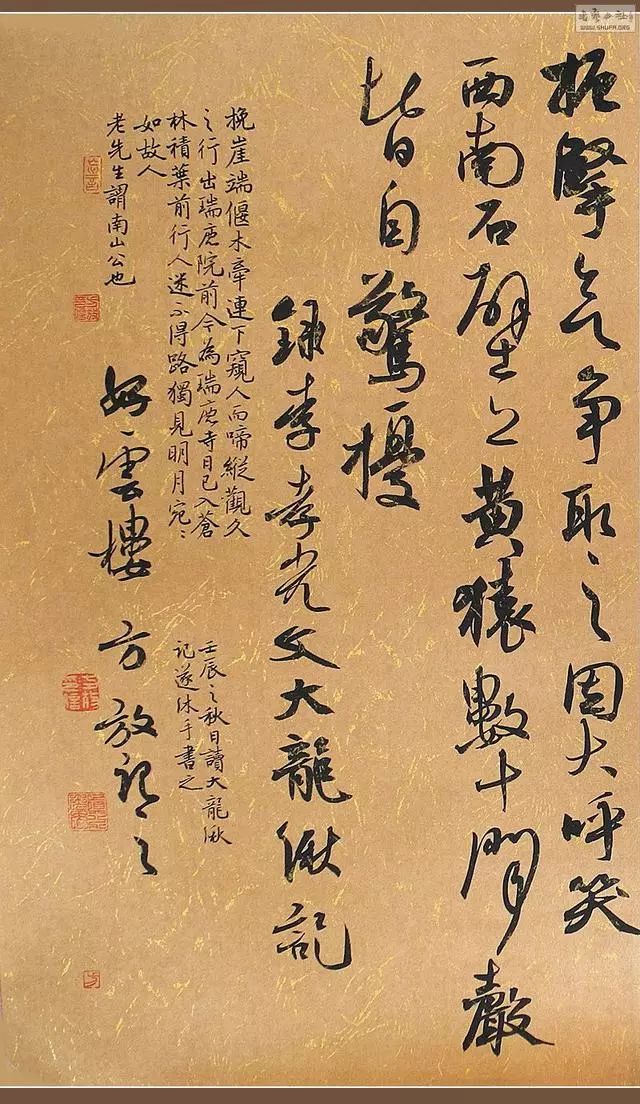 爭取之因大呼笑
西南石壁上黃猿數十聞聲
皆自驚擾
錄李孝光文大龍湫記
挽崖端偃木牽連下窺人而啼縱觀久
之行出瑞鹿院前今為瑞鹿寺日已入蒼
林積葉前行人迷不得路獨見明月宛〻
如故人
老先生謂南山公也
壬辰之秋日讀大龍湫
記遂休手書之
好雲樓方放
WWW.SHUFA.ORG